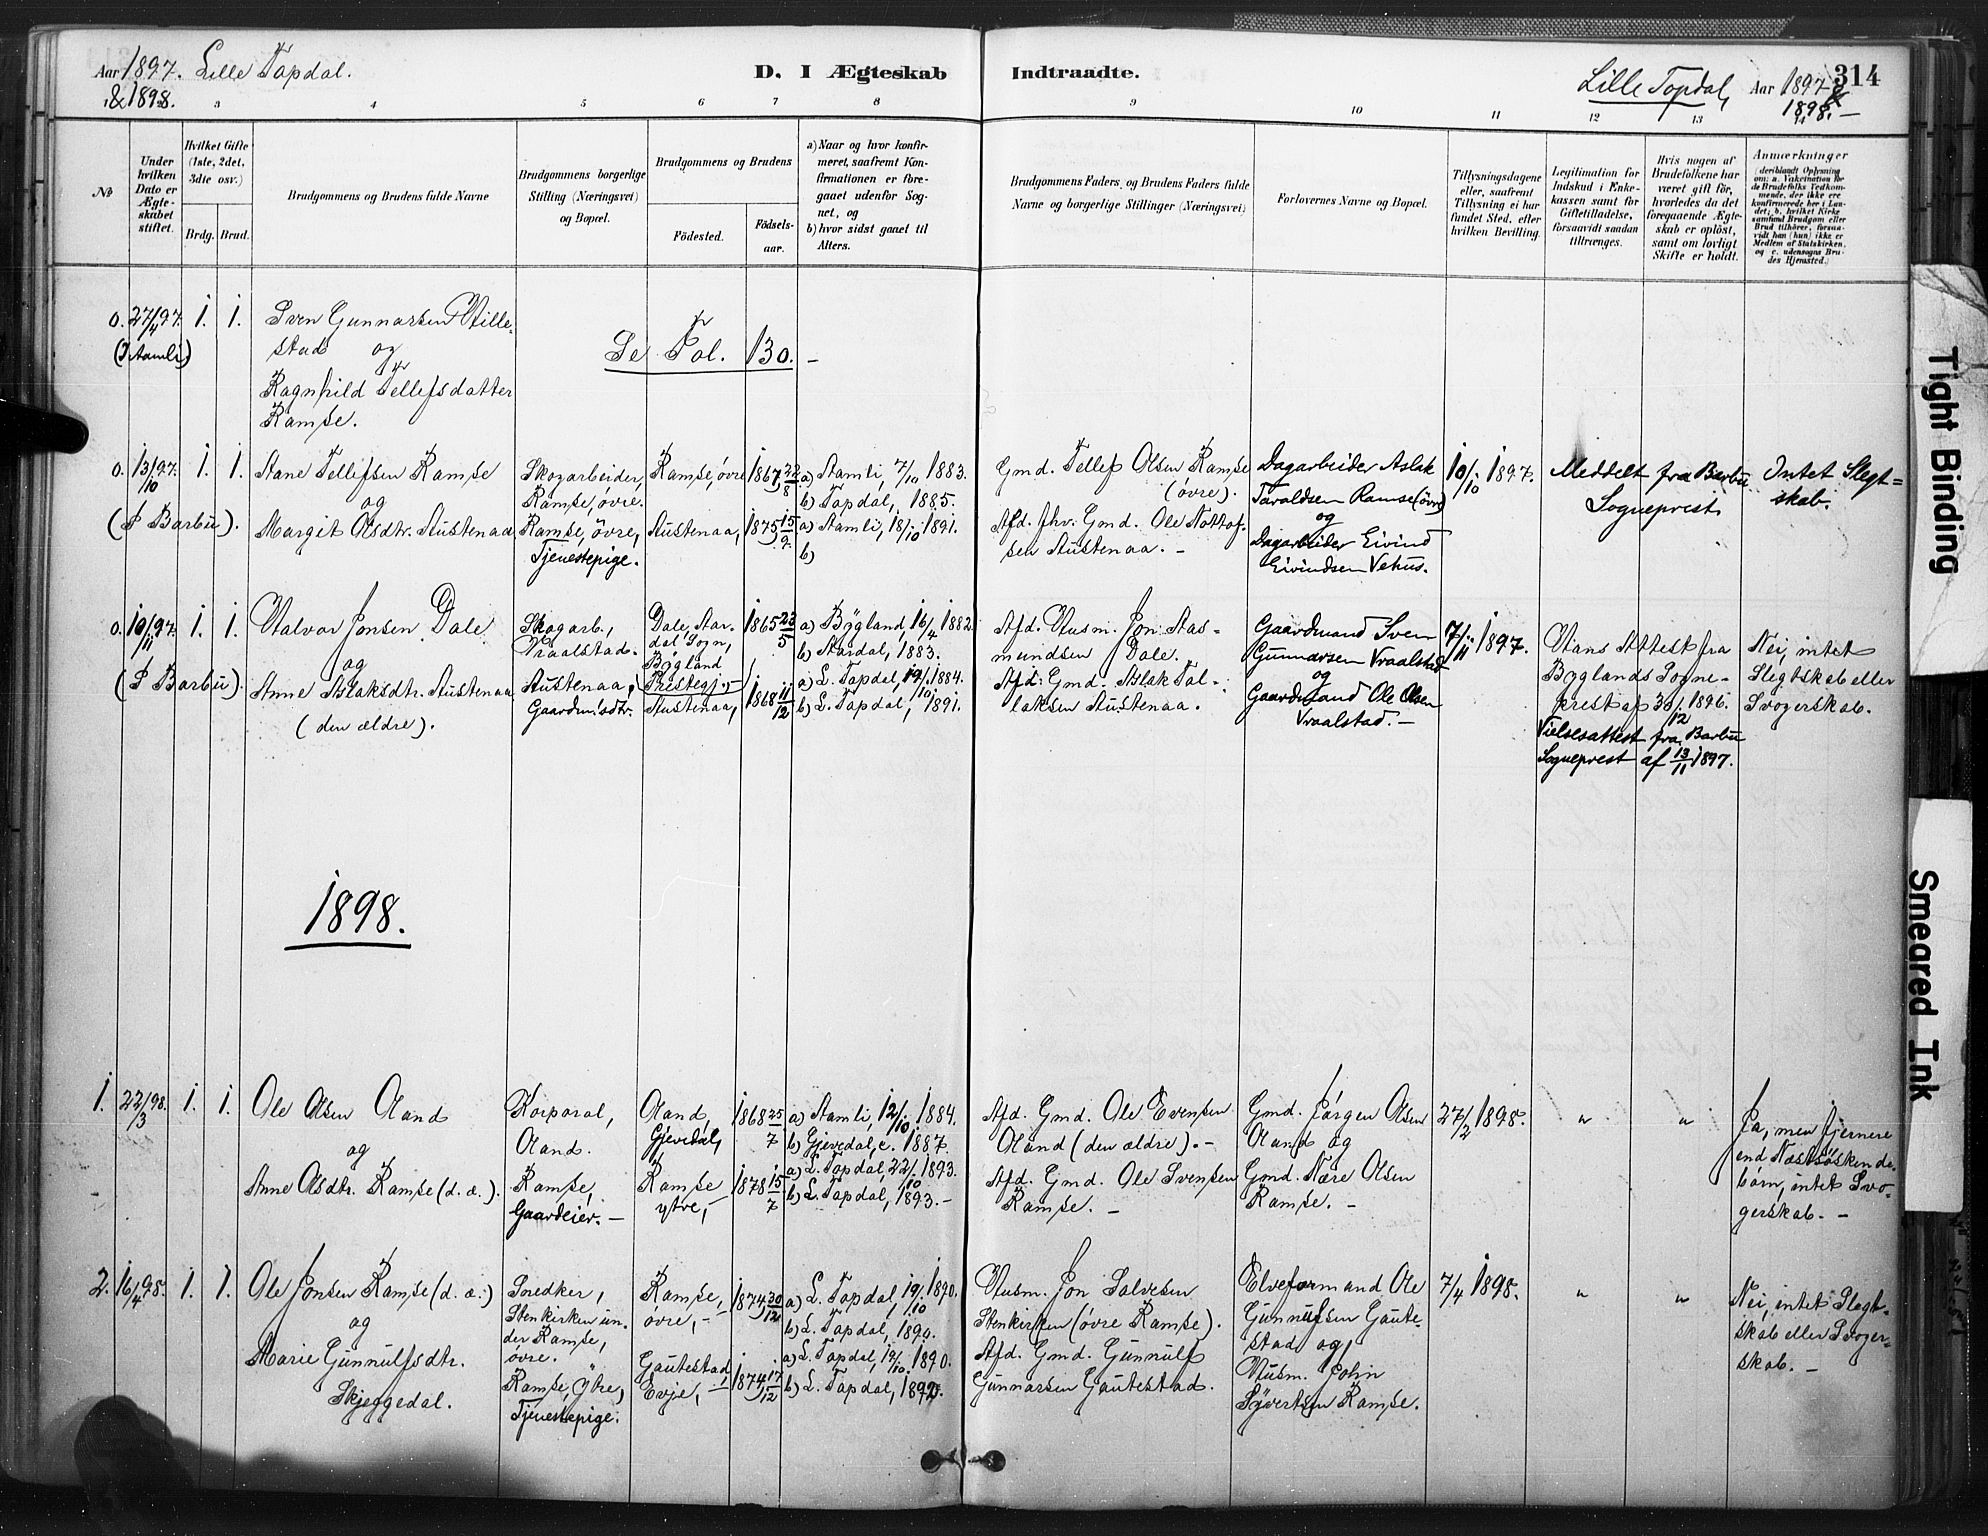 Aar 1897. Lille Topdal.
& 1898.
D. I Ægteskab
Indtraadte.
Lille Topdal, Aar 1897 &
1898. —
314
1 3 4 5 6 7 8 9 10 11 12 13 14
No
Under hvilken Dato er Ægteskabet stiftet.
Hvilket Gifte (1ste, 2det, 3die osv.)
Brdg. Brud.
Brudgommens og Brudens fulde Navne
Brudgommens borgerlige Stilling (Næringsvei) og Bopæl.
Brudgommens og Brudens
Födested.
Födsels-aar.
a) Naar og hvor konfirmeret, saafremt Konfirmationen er foregaaet udenfor Sognet, og
b) hvor sidst gaaet til Alters.
Brudgommens Faders og Brudens Faders fulde Navne og borgerlige Stillinger (Næringsvei)
Forlovernes Navne og Bopæl.
Tillysningsdagene eller, saafremt Tillysning ei har fundet Sted, efter hvilken Bevilling.
Legitimation for Indskud i Enkekassen samt for Giftetilladelse, forsaavidt saadan tiltrænges.
Hvis nogen af Brudefolkene har været gift för, hvorledes da det foregaaende Ægteskab er oplöst, samt om lovligt Skifte er holdt.
Anmærkninger (deriblandt Oplysning om: a. Vakcination for de Brudefolks Vedkommende, der ikke ere konfirmerede her i Landet; b. hvilket Kirkesamfund Brudgom eller Brud tilhörer, forsaavidt han (hun) ikke er Medlem af Statskirken, og c. udensogns Brudes Hjemsted.)
0. 27/4 97. 1. 1. Sven Gunnarsen Ville-
(I Aamli) stad og
Ragnhild Tellefsdatter
Ramse.
Se Fol. 130. —
0. 13/10 97. 1. 1. Aane Tellefsen Ramse
og
(I Barbu). Margit Olsdtr. Austenaa
Skogarbeider, Ramse, övre.
Ramse, övre, Tjenestepige.
Ramse, övre 1867, 22/8
Austenaa, 1875, 15/9
a) Aamli, 7/10 1883.
b) Topdal, 1885.
a) Aamli, 18/10 1891.
b)
Gmd. Tellef Olsen Ramse
(övre).
Afd. fhv. Gmd. Ole Nottof-
sen Austenaa. —
Dagarbeider Aslak
Taraldsen Ramse (övre)
og
Dagarbeider Eivind
Eivindsen Vehus.
10/10 1897.
Meddelt fra Barbu
Sogneprest
Intet Slegt=
skab.
0. 10/11 97. 1. 1. Halvor Jonsen Dale
og
(I Barbu). Anne Aslaksdtr. Austenaa
(den ældre).
Skogarb.,
Vraalstad.
Austenaa,
Gaardm'sdtr.
Dale, Aar-
dal Sogn,
Bygland
Prestegj.
Austenaa,
1865 23/5
1868 11/12
a) Bygland, 16/4 1882
b) Aardal, 1883.
a) L. Topdal, 19/10 1884.
b) L. Topdal, 1891.
Afd. Husm. Jon Aas-
mundsen Dale.
Afd. Gmd. Aslak Tal-
laksen Austenaa.
Gaardmand Sven
Gunnarsen Vraalstad
og
Gaardmand Ole Olsen
Vraalstad. —
7/11 1897.
Hans Attest fra
Byglands Sogne-
prest af 30/12 1896.
Vielsesattest fra Barbu
Sogneprest af 13/11 1897.
Nei, intet
Slegtskab eller
Svogerskab.
1898.
1. 22/3 98. 1. 1. Ole Olsen Aland
og
Anne Olsdtr. Ramse (d. æ.).
Korporal,
Aland.
Ramse,
Gaardeier. —
Aland,
Gjevedal,
Ramse
ytre,
1868 25/7
1878 15/7
a) Aamli, 12/10 1884.
b) Gjevedal, c. 1887.
a) L. Topdal, 22/10 1893.
b) L. Topdal, 1893. —
Afd. Gmd. Ole Evensen
Aland (den ældre). —
Afd. Gmd. Ole Svensen
Ramse. —
Gmd. Jörgen Olsen
Aland og
Gmd. Nære Olsen
Ramse. —
27/2 1898.
" "
Ja, men fjernere
end Næstsöskende-
börn, intet Svo-
gerskab. —
2. 16/4 98. 1. 1. Ole Jonsen Ramse (d. æ.)
og
Marie Gunnulfsdtr.
Skjeggedal.
Snedker,
Stenkirken un-
der Ramse,
övre.
Ramse, Ytre,
Tjenestepige.
Ramse,
övre, —
Gautestad,
Evje, —
1874, 30/12
1874 17/12
a) L. Topdal, 19/10 1890.
b) L. Topdal, 1890.
a) L. Topdal, 19/10 1890.
b) L. Topdal, 1892.
Husm. Jon Salvesen
Stenkirken (övre Ramse).
Afd. Gmd. Gunnulf
Gunnarsen Gautestad.
Elveformand Ole
Gunnulfsen Gaute-
stad og
Husm.
Syvertsen Ramse.
7/4 1898.
" "
Nei, intet Slegt-
skab eller Svoger-
skab. —
Tight Binding
Smeared Ink